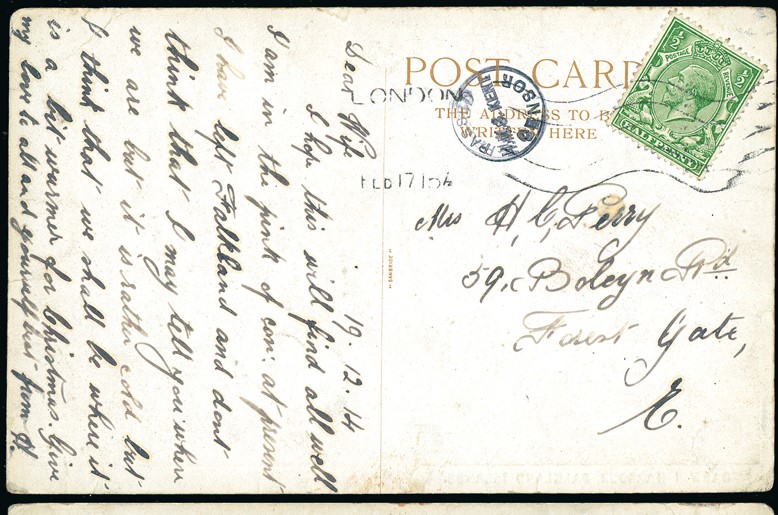 19. 12. 14
Dear Wife
I hope this will find all well
I am in the pink of con: at present
I have left Falkland and dont
think that I may tell you where
we are but it is rather cold but
I think that we shall be where it
is a bit warmer for Christmas. Give
my love to all and yourself but from H.
POST CARD
THE ADDRESS TO B
WRITTEN HERE
LONDON
FEB 17 15
CENSOR
½
½
POSTAGE
REVENUE
HALFPENNY
Mrs H. C. Perry
59, Boleyn Rd
Forest Gate,
E.